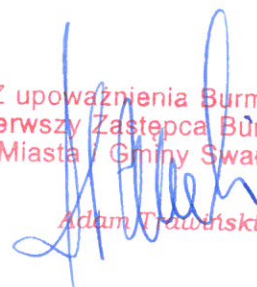 Z upoważnienia Burm
erwszy Zastępca Bur
Miasta i Gminy Swa
Adam Trawiński